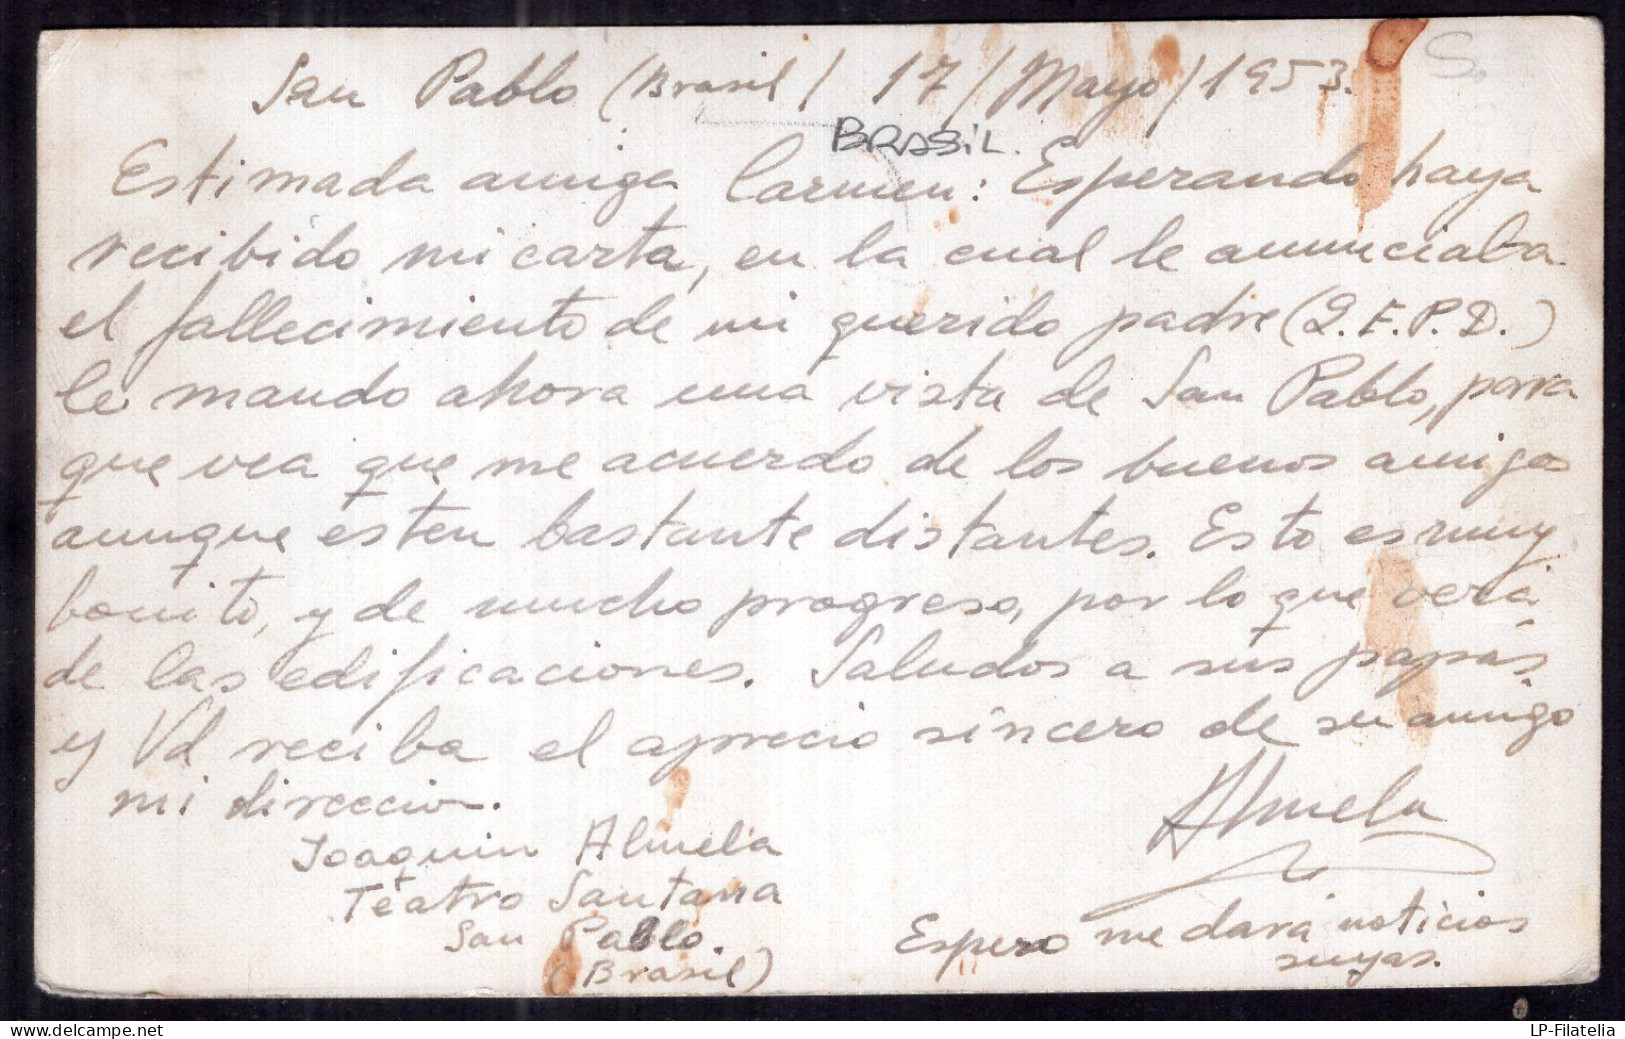 San Pablo (Brasil) 17/Mayo/1953.
S.
BRASiL.
Estimada amiga Carmen: Esperando haya
recibido mi carta, en la cual le anunciaba
el fallecimiento de mi querido padre (Q.E.P.D.)
le mando ahora una vista de San Pablo, para
que vea que me acuerdo de los buenos amigos
aunque esten bastante distantes. Esto es muy
bonito, y de mucho progreso, por lo que verá
de las edificaciones. Saludos a sus papás
y Vd reciba el aprecio sincero de su amigo
mi direccion.
Almela
Joaquin Almela
Teatro Santana
San Pablo.
(Brasil)
Espero me dará noticias
suyas.
LP-Filatelia